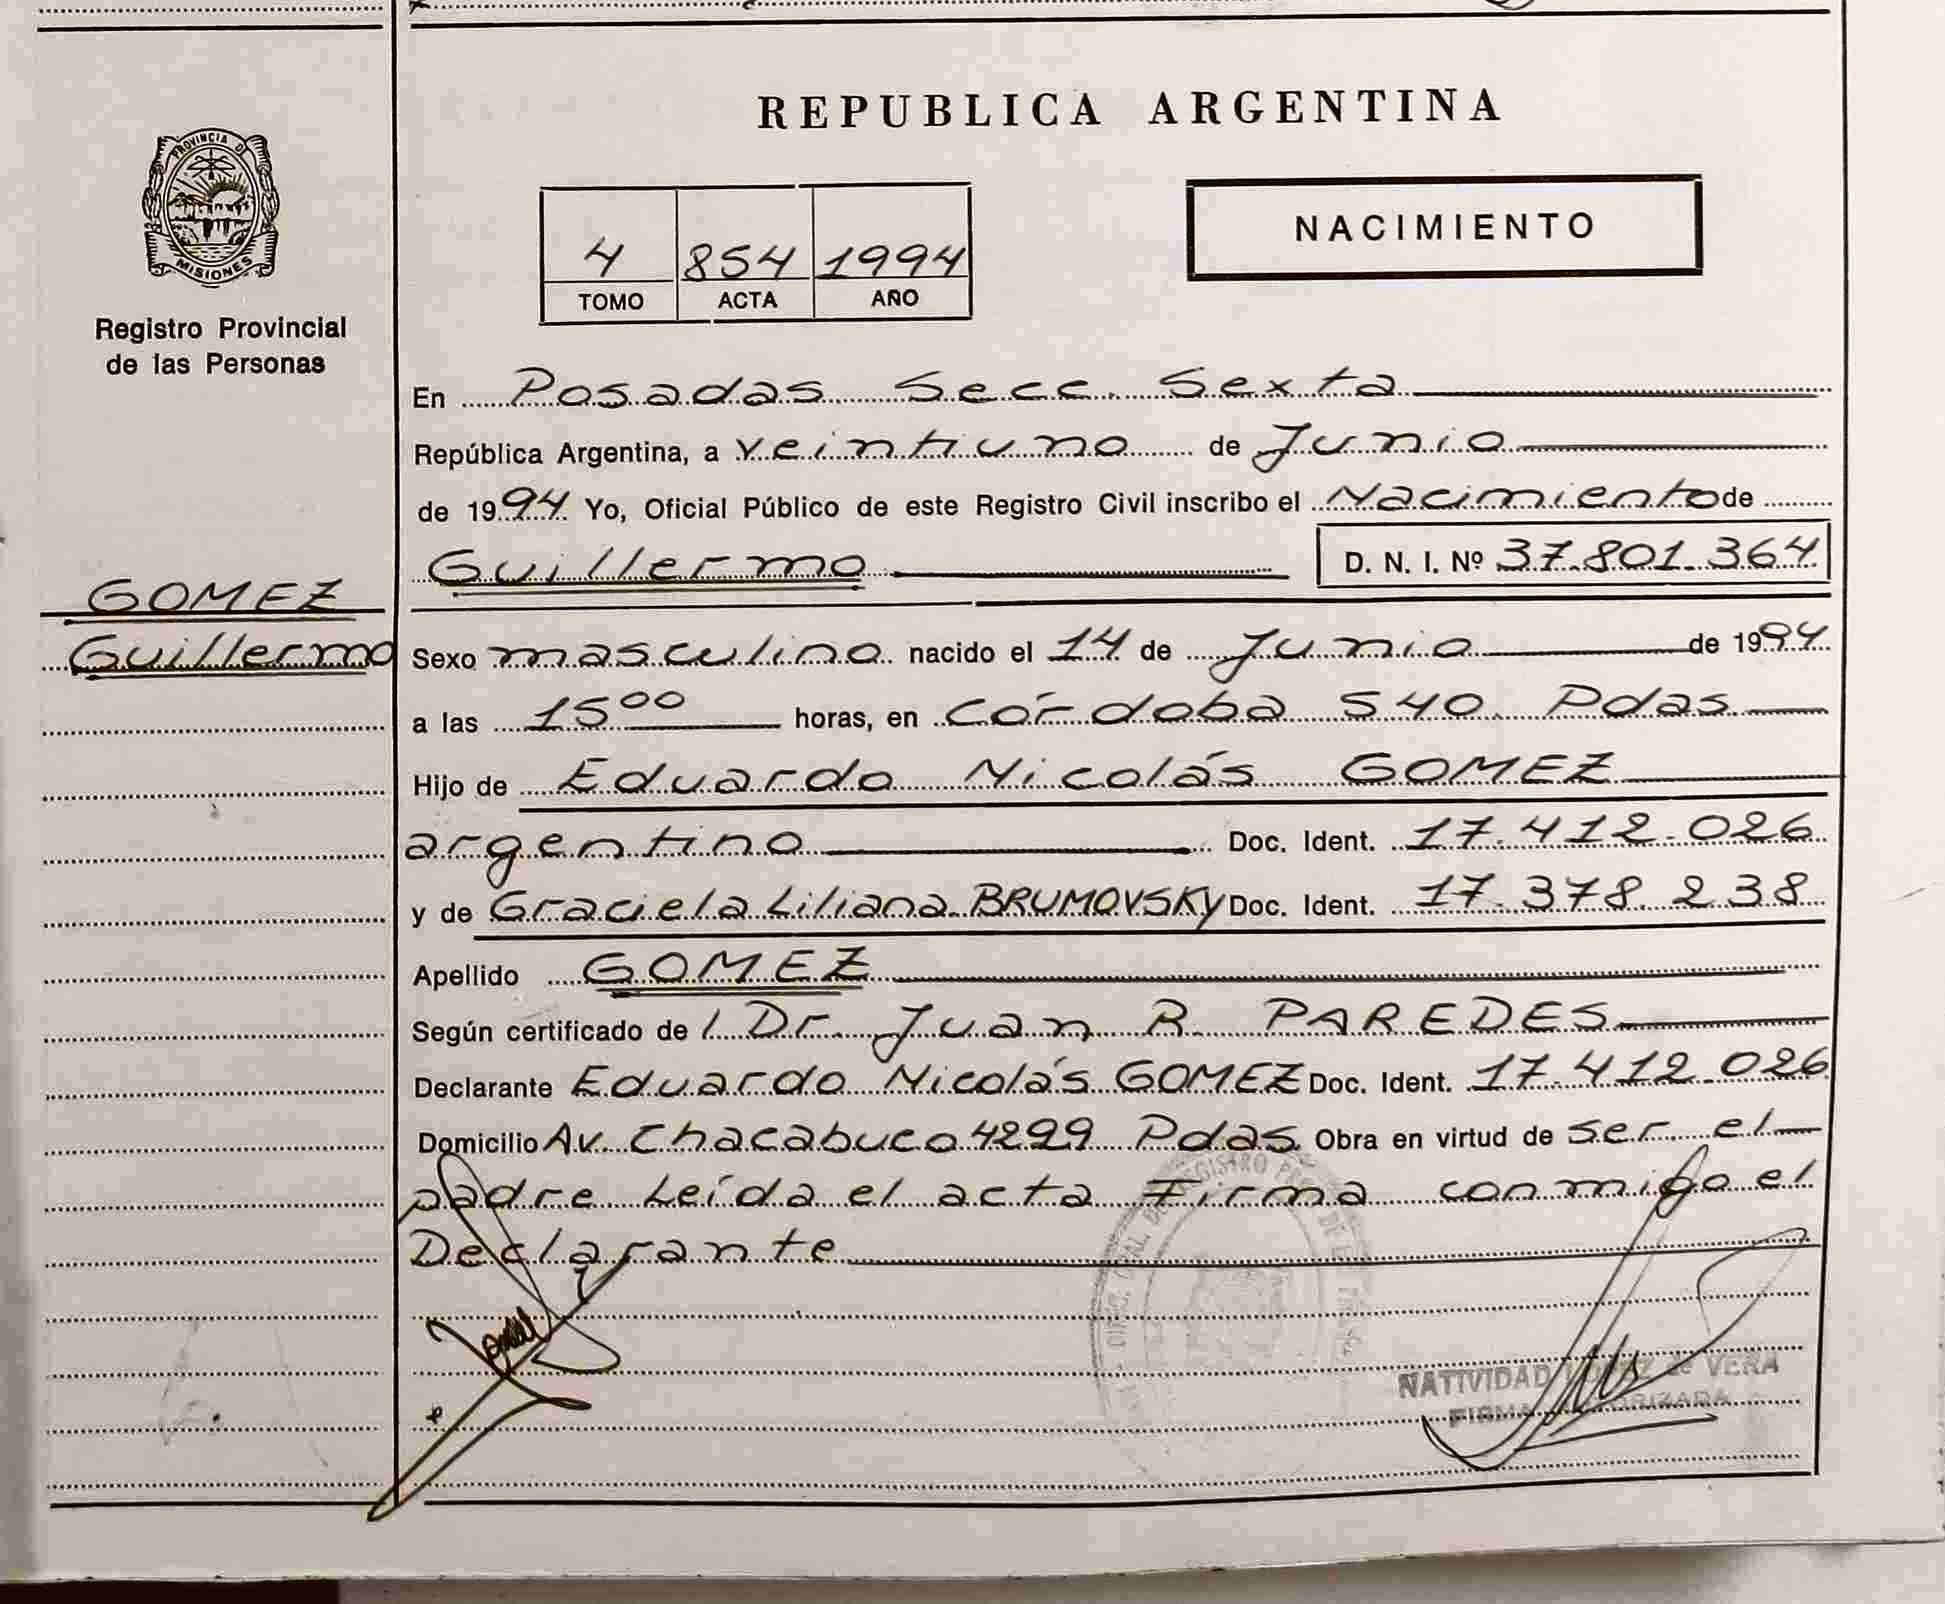 REPUBLICA ARGENTINA
PROVINCIA D
MISIONES
Registro Provincial
de las Personas
NACIMIENTO
4 854 1994
TOMO ACTA AÑO
En Posadas Secc. Sexta
República Argentina, a veintiuno de Junio
de 1994 Yo, Oficial Público de este Registro Civil inscribo el Nacimiento de
Guillermo D. N. I. Nº 37.801.364
GOMEZ
Guillermo
Sexo masculino nacido el 14 de Junio de 1994
a las 15⁰⁰ horas, en Córdoba 540 Pdas
Hijo de Eduardo Nicolás GOMEZ
argentino Doc. Ident. 17.412.026
y de Graciela Liliana BRUMOVSKY Doc. Ident. 17.378.238
Apellido GOMEZ
Según certificado de l Dr. Juan R. PAREDES
Declarante Eduardo Nicolás GOMEZ Doc. Ident. 17.412.026
Domicilio Av. Chacabuco 4299 Pdas. Obra en virtud de ser el
padre Leída el acta Firma conmigo el
Declarante
NATIVIDAD LOPEZ de VERA
FIRMA AUTORIZADA